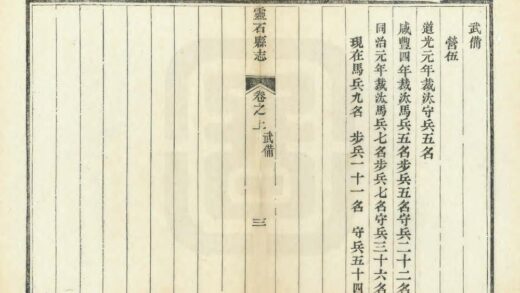 武備
營伍
道光元年裁汰守兵五名
咸豐四年裁汰馬兵五名步兵五名守兵二十二名
同治元年裁汰馬兵七名步兵七名守兵三十六名
現在馬兵九名 步兵一十一名 守兵五十四
靈石縣志 卷之上 武備 三